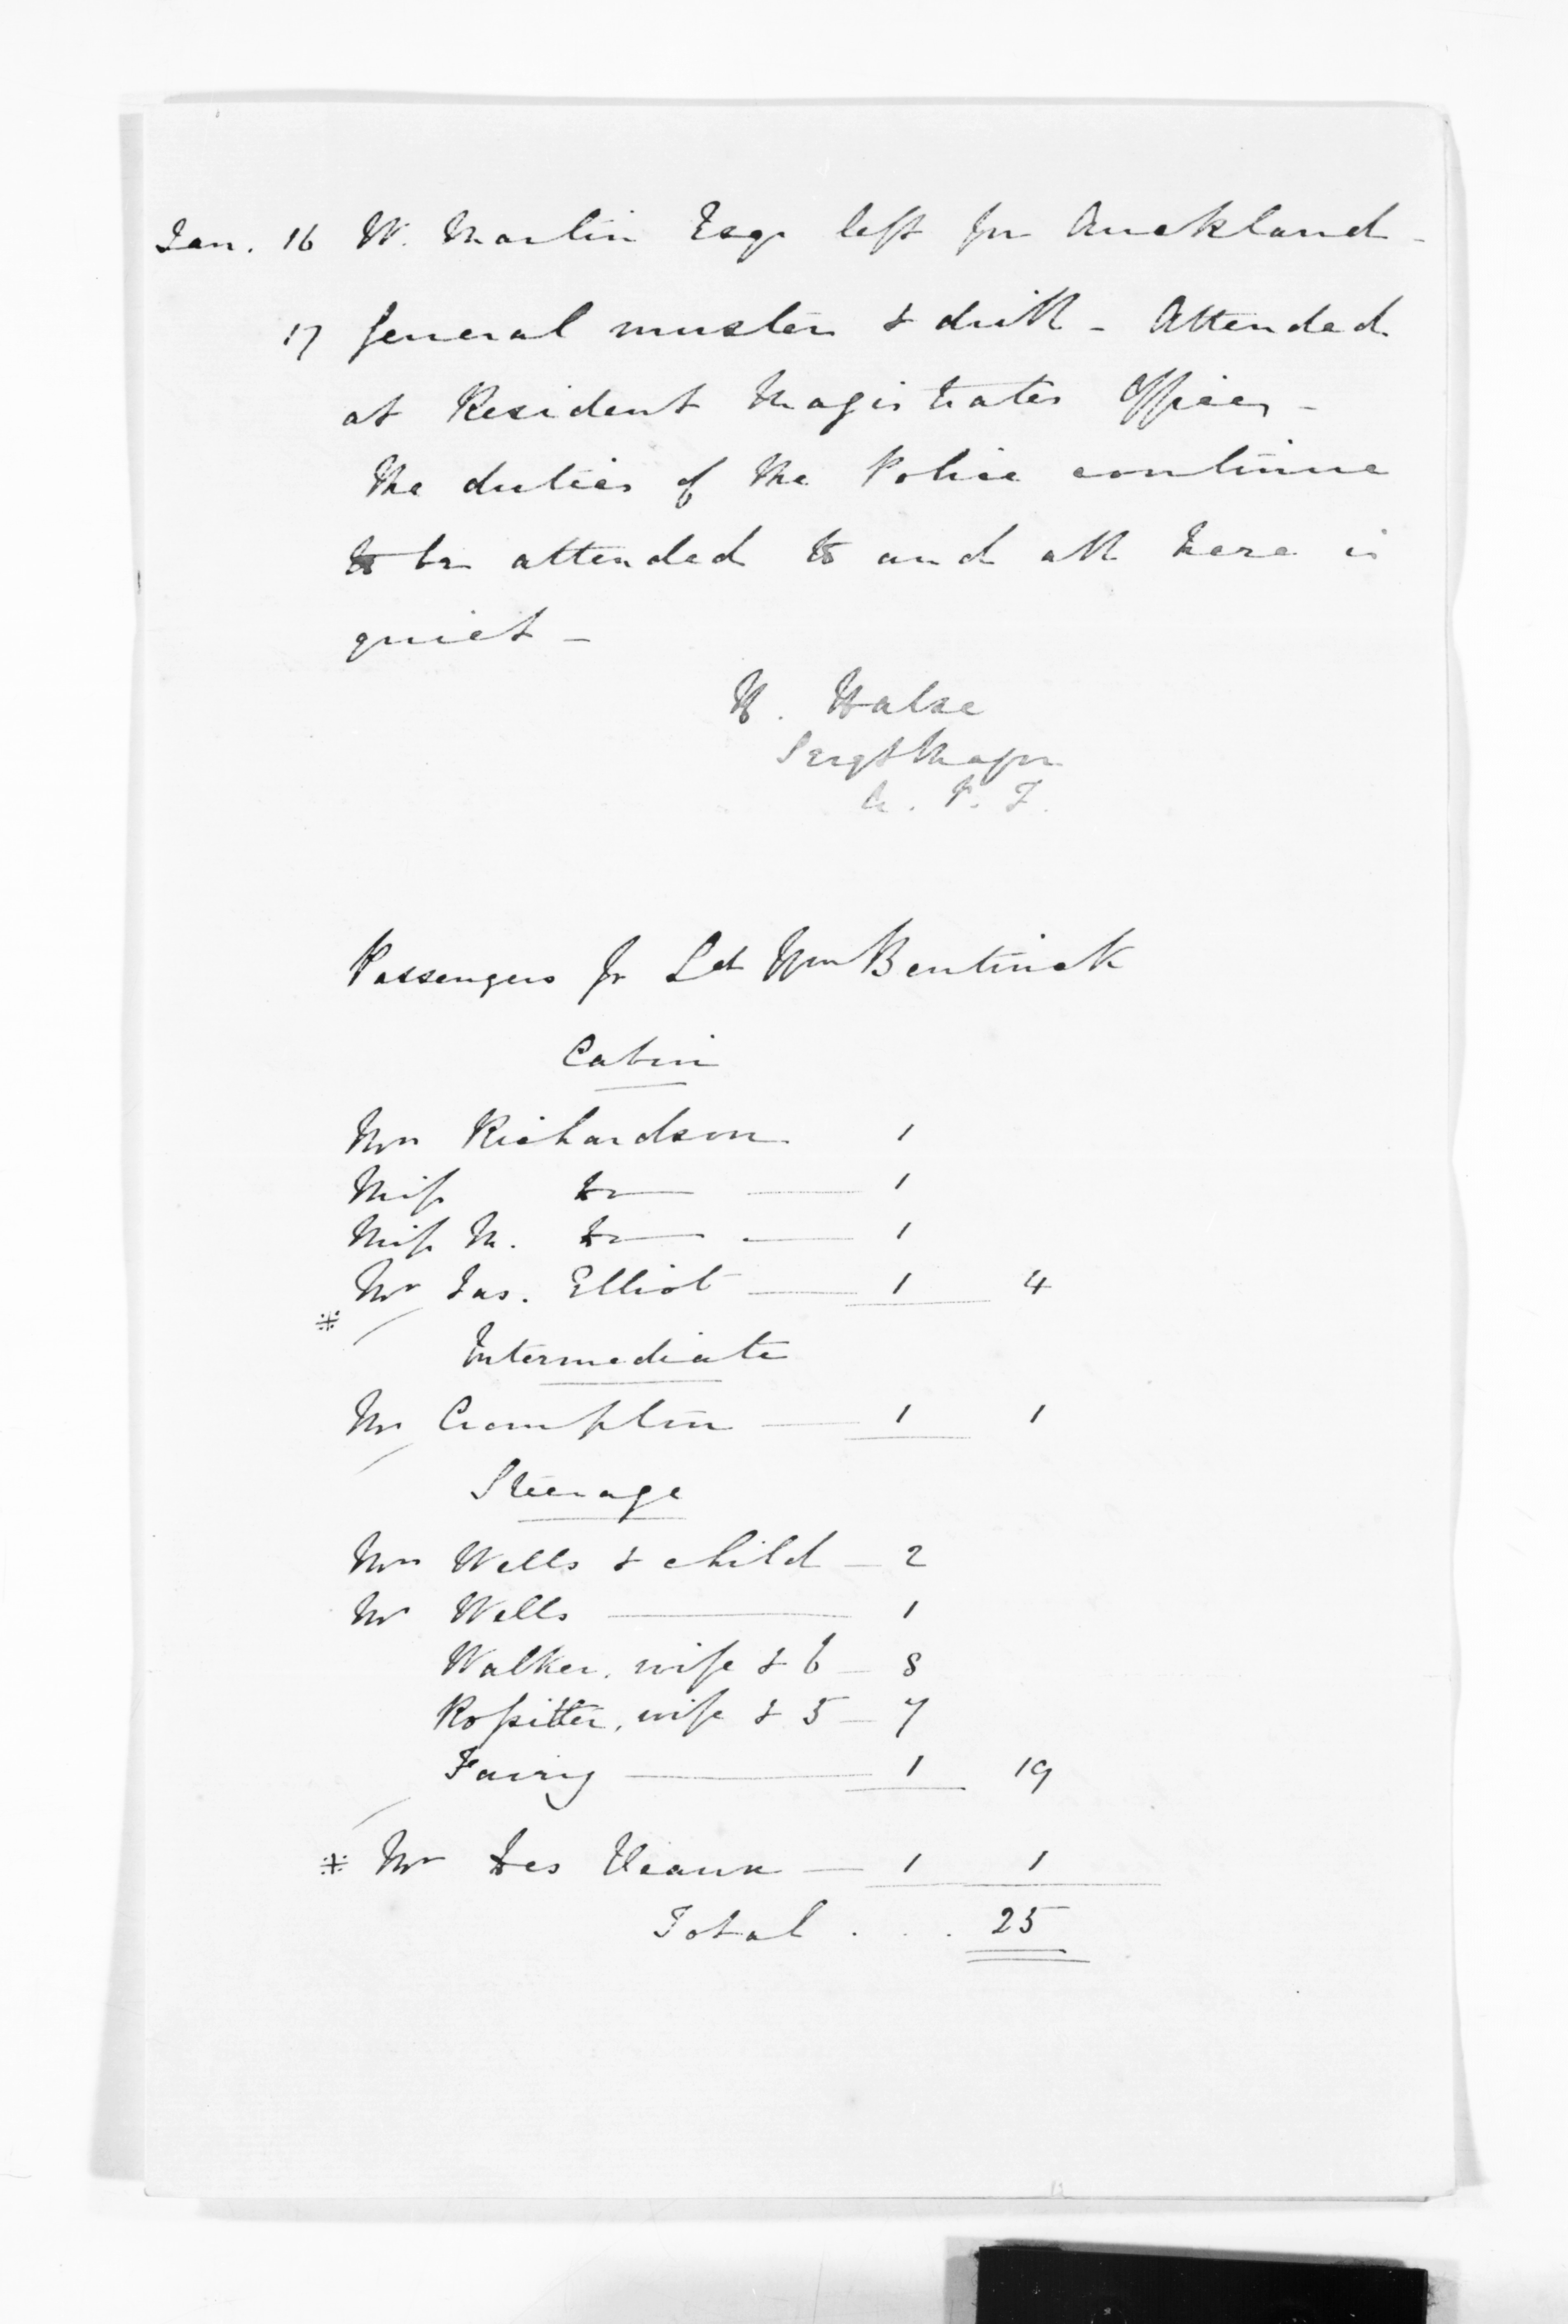 Jan. 16 W. Martin Esqr left for Auckland -
17 General muster & drill - Attended
at Resident Magistrates Office, -
The duties of the Police continue
to be attended to and all here is
quiet -
W. Halse
Sergt Major
A. P. F.
Passengers pr Ld Wm Bentinck
Cabin
Mrs Richardson 1
Miss Do — 1
Miss M. Do — 1
Mr Jas. Elliot — 1 4
※
Intermediate
Mr Crompton — 1 1
Steerage
Mrs Wells & child — 2
Mr Wells — 1
Walker, wife & 6 — 8
Rossitter, wife & 5 — 7
Fairy — 1 19
※ Mr Des Veaux — 1 1
Total . . . 25